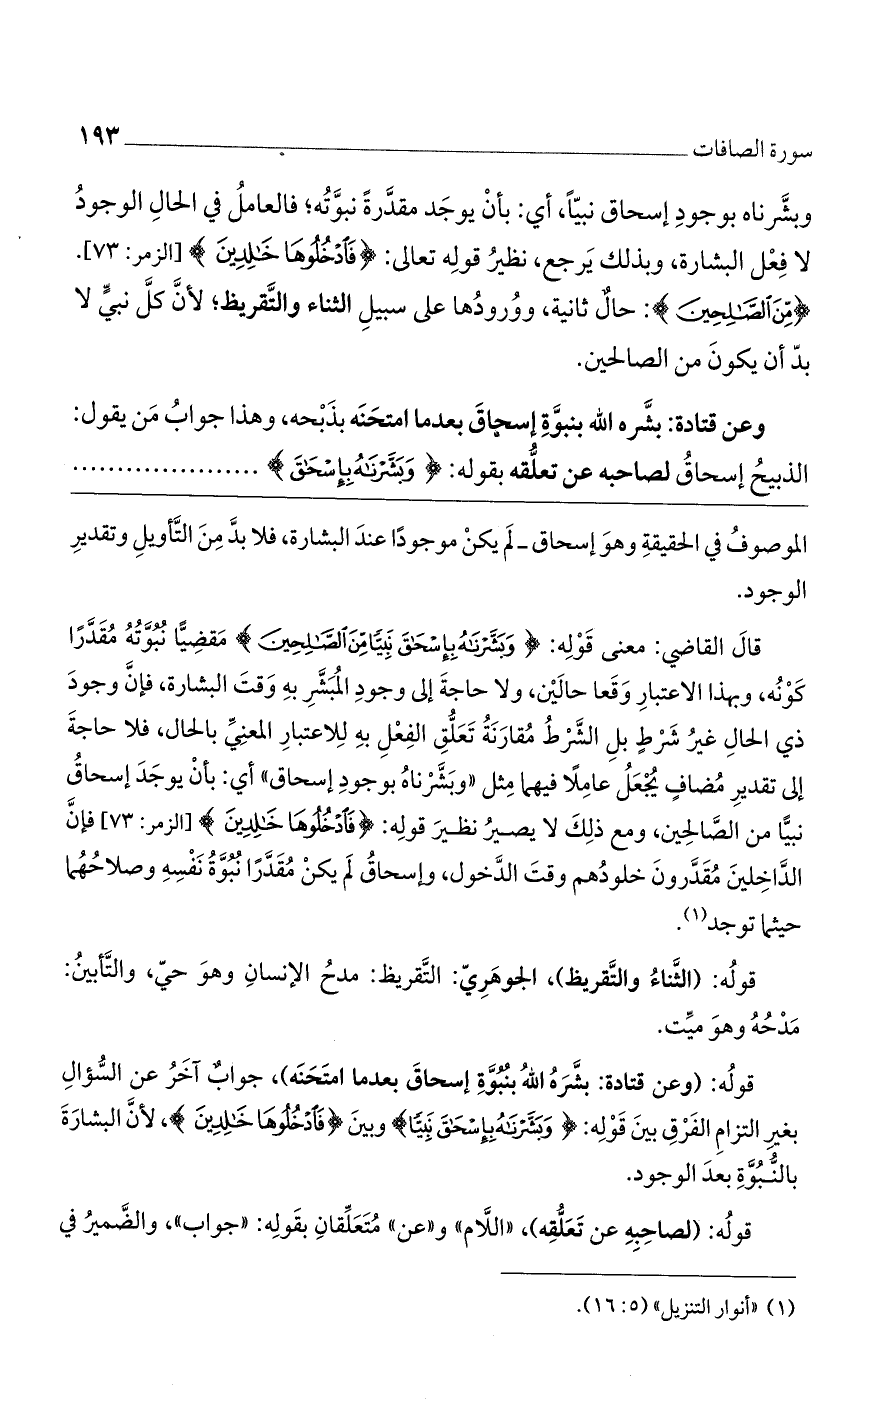 سورة الصافات ١٩٣
وبشَّرناه بوجودِ إسحاق نبيّاً، أي: بأنْ يوجَد مقدَّرةً نبوَّتُه؛ فالعاملُ في الحالِ الوجودُ
لا فِعْل البشارة، وبذلك يَرجع، نظيرُ قولِه تعالى: ﴿فَٱدْخُلُوهَا خَٰلِدِينَ﴾ [الزمر: ٧٣].
﴿مِّنَ ٱلصَّٰلِحِينَ﴾: حالٌ ثانية، ووُرودُها على سبيلِ الثناء والتَّقريظ؛ لأنَّ كلَّ نبيٍّ لا
بدّ أن يكونَ من الصالحين.
وعن قتادة: بشَّره الله بنبوَّةِ إسحاقَ بعدما امتحَنَه بذَبْحه، وهذا جوابُ مَن يقول:
الذبيحُ إسحاقُ لصاحبه عن تعلُّقه بقوله: ﴿وَبَشَّرْنَٰهُ بِإِسْحَٰقَ﴾ .....................
الموصوفُ في الحقيقةِ وهوَ إسحاق - لَم يكنْ موجودًا عندَ البشارة، فلا بدَّ مِنَ التَّأويلِ وتقديرِ
الوجود.
قالَ القاضي: معنى قَوْلِه: ﴿وَبَشَّرْنَٰهُ بِإِسْحَٰقَ نَبِيًّا مِّنَ ٱلصَّٰلِحِينَ﴾ مَقضِيًّا نُبُوَّتُهُ مُقَدَّرًا
كَوْنُه، وبهذا الاعتبارِ وَقَعا حالَيْن، ولا حاجةَ إلى وجودِ المُبَشَّرِ بهِ وَقتَ البشارة، فإنَّ وجودَ
ذي الحالِ غيرُ شَرْطٍ بلِ الشَّرْطُ مُقارَنَةُ تَعَلُّقِ الفِعْلِ بهِ لِلاعتبارِ المعنِيِّ بالحال، فلا حاجةَ
إلى تقديرِ مُضافٍ يُجْعَلُ عامِلًا فيهما مِثل «وبَشَّرْناهُ بوجودِ إسحاق» أي: بأنْ يوجَدَ إسحاقُ
نبيًّا من الصَّالحِين، ومع ذلِكَ لا يصيرُ نظيرَ قولِه: ﴿فَٱدْخُلُوهَا خَٰلِدِينَ﴾ [الزمر: ٧٣] فإنَّ
الدَّاخِلينَ مُقَدَّرونَ خلودُهم وقتَ الدَّخول، وإسحاقُ لَم يكنْ مُقَدَّرًا نُبُوَّةُ نَفْسِهِ وصلاحُهُما
حيثما توجد(١).
قولُه: (الثَّناءُ والتَّقريظ)، الجوهَرِيّ: التَّقريظ: مدحُ الإنسانِ وهوَ حيّ، والتَّأبينُ:
مَدْحُهُ وهوَ ميِّت.
قولُه: (وعن قتادة: بشَّرَهُ اللهُ بنُبُوَّةِ إسحاقَ بعدما امتَحَنَه)، جوابٌ آخَرُ عن السُّؤالِ
بغيرِ التزامِ الفَرْقِ بينَ قَوْلِه: ﴿وَبَشَّرْنَٰهُ بِإِسْحَٰقَ نَبِيًّا﴾ وبينَ ﴿فَٱدْخُلُوهَا خَٰلِدِينَ﴾، لأنَّ البشارَةَ
بالنُّبُوَّةِ بعدَ الوجود.
قولُه: (لصاحِبِهِ عن تَعَلُّقِه)، «اللَّام» و«عن» مُتَعَلِّقانِ بقَولِه: «جواب»، والضَّميرُ في
(١) «أنوار التنزيل» (٥: ١٦).